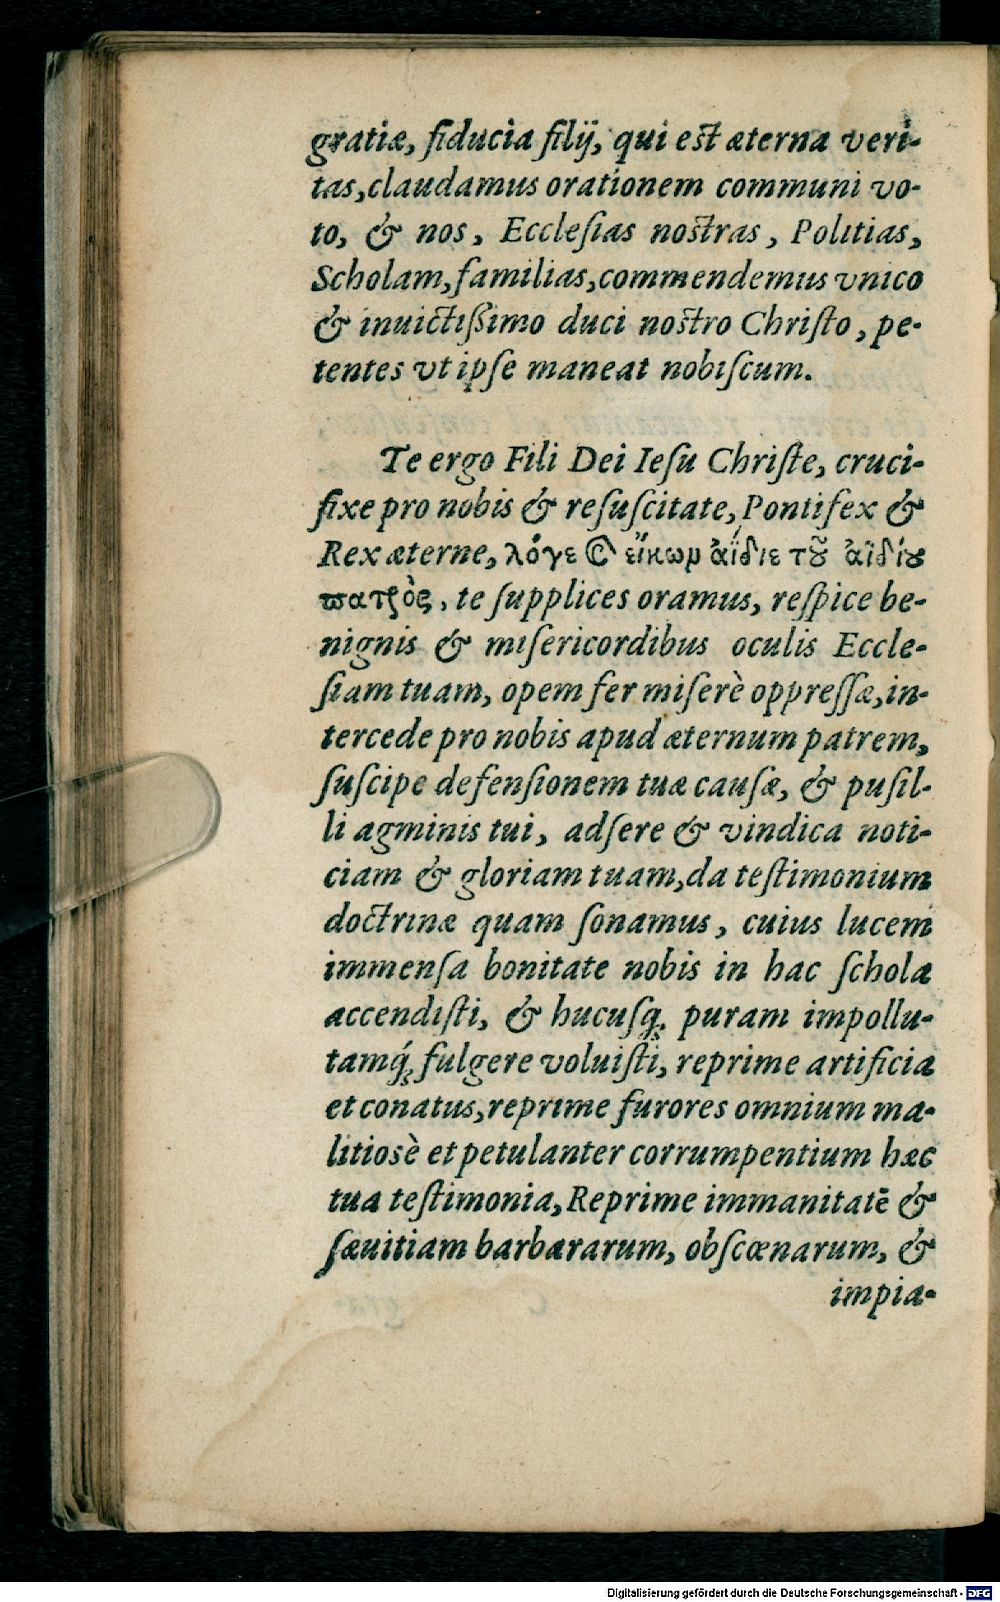 gratiæ, fiducia filij, qui est æterna veri-
tas, claudamus orationem communi vo-
to, & nos, Ecclesias nostras, Politias,
Scholam, familias, commendemus vnico
& inuictißimo duci nostro Christo, pe-
tentes vt ipse maneat nobiscum.
Te ergo Fili Dei Iesu Christe, cruci-
fixe pro nobis & resuscitate, Pontifex &
Rex æterne, λόγε καὶ εἴκωμ ἀΐδιε τοῦ ἀϊδίου
πατρὸς, te supplices oramus, respice be-
nignis & misericordibus oculis Eccle-
siam tuam, opem fer miserè oppressæ, in-
tercede pro nobis apud æternum patrem,
suscipe defensionem tuæ causæ, & pusil-
li agminis tui, adsere & vindica noti-
ciam & gloriam tuam, da testimonium
doctrinæ quam sonamus, cuius lucem
immensa bonitate nobis in hac schola
accendisti, & hucusq; puram impollu-
tamq́; fulgere voluisti, reprime artificia
et conatus, reprime furores omnium ma-
litiosè et petulanter corrumpentium hæc
tua testimonia, Reprime immanitatē &
sæuitiam barbararum, obscœnarum, &
impia-
Digitalisierung gefördert durch die Deutsche Forschungsgemeinschaft - DFG